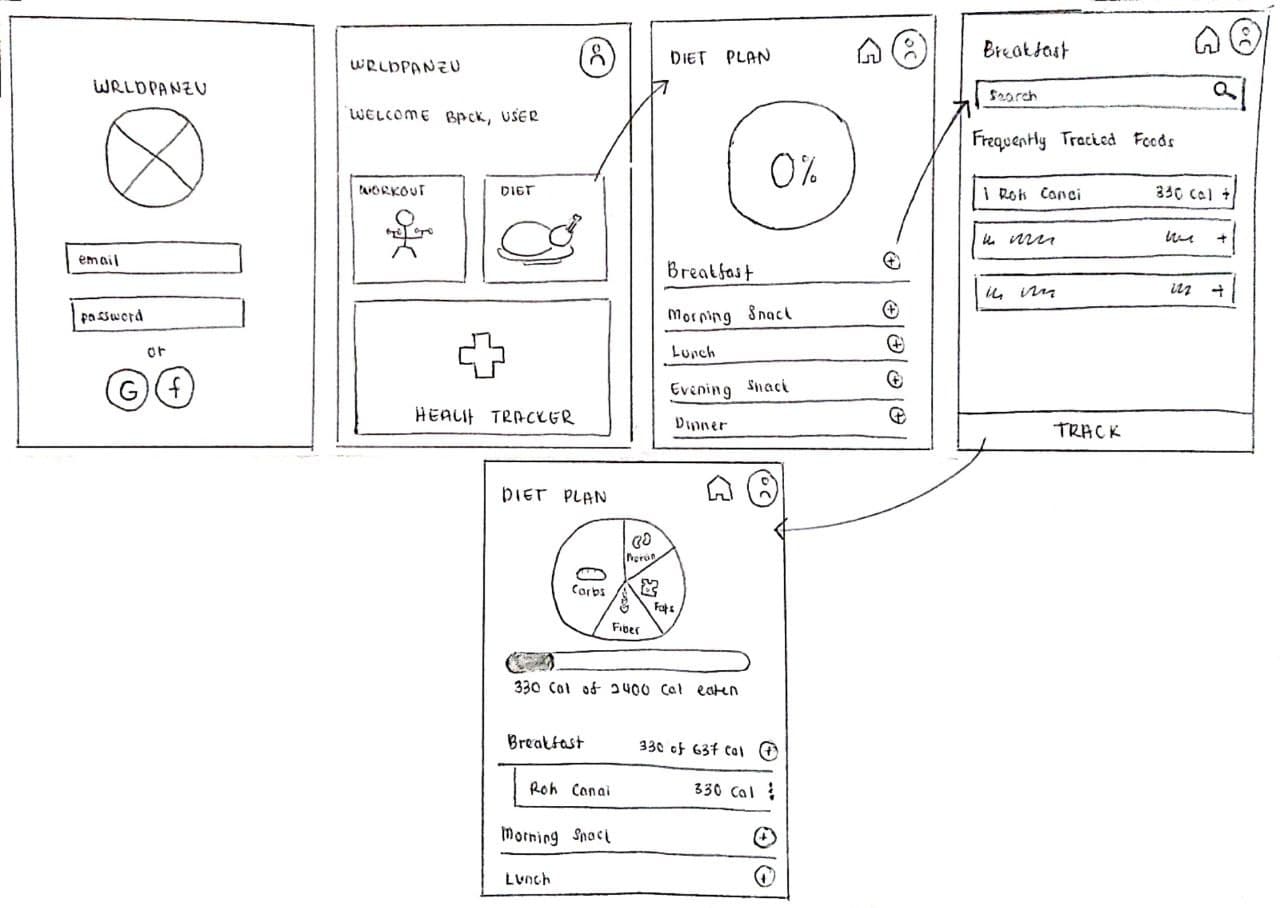 WRLDPANZU
email
password
or
G f
WRLDPANZU
WELCOME BACK, USER
WORKOUT
DIET
HEALH TRACKER
DIET PLAN
0%
Breakfast
Morning Snack
Lunch
Evening Snack
Dinner
Breakfast
Search
Frequently Tracked Foods
1 Roti Canai 330 Cal +
+
+
TRACK
DIET PLAN
Carbs
Protein
Fats
Fiber
330 Cal of 2400 Cal eaten
Breakfast 330 of 637 Cal
Roti Canai 330 Cal
Morning Snack
Lunch